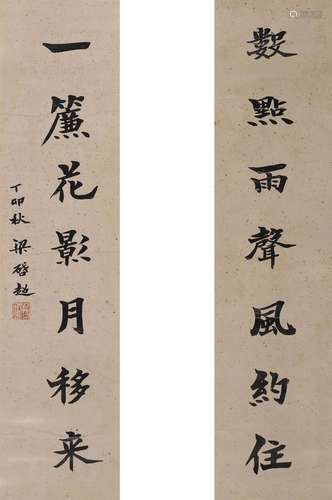 數點雨聲風約住
一簾花影月移来
丁卯秋 梁啓超